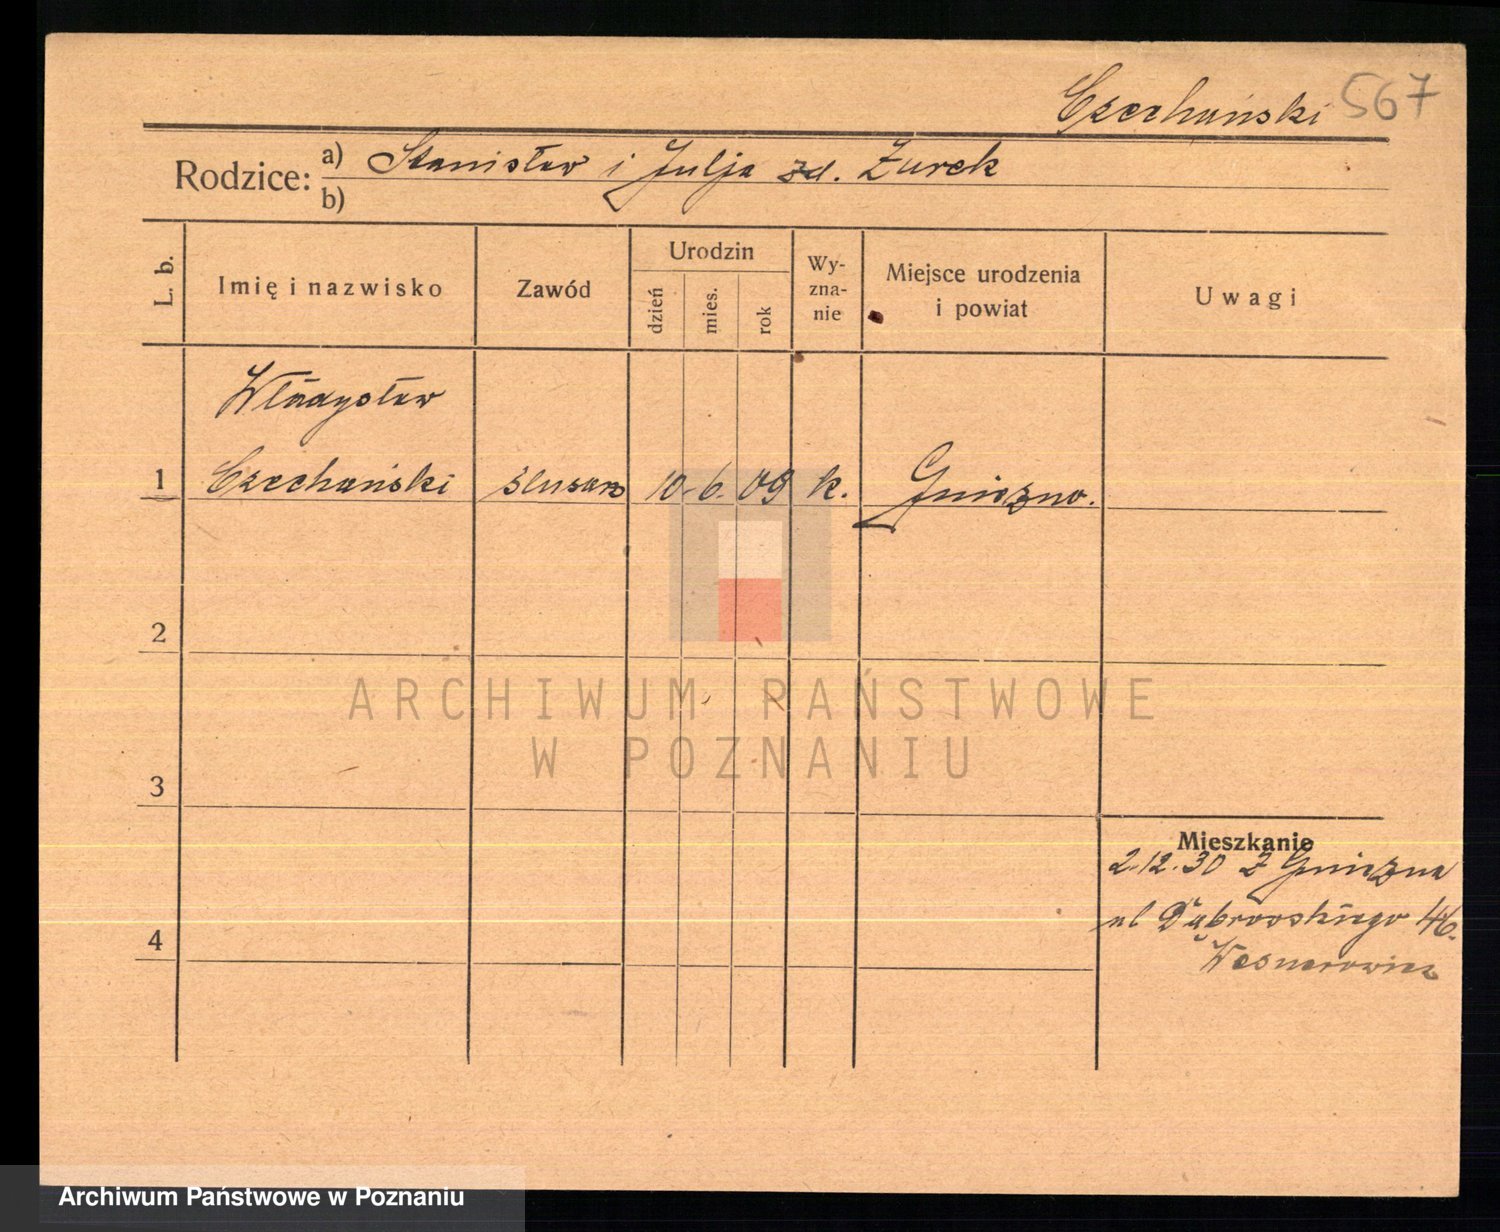 Czechański 567
Rodzice: a) Stanisław i Julja zd. Żurek
b)
L. b.
Imię i nazwisko
Zawód
Urodzin
dzień
mies.
rok
Wy-
zna-
nie
Miejsce urodzenia
i powiat
Uwagi
Władysław
1 Czechański ślusarz 10. 6. 09 k. Gniezno.
2
ARCHIWUM PAŃSTWOWE
W POZNANIU
3
Mieszkanie
2.12.30 z Gniezna
ul Dąbrowskiego 46.
4
Archiwum Państwowe w Poznaniu